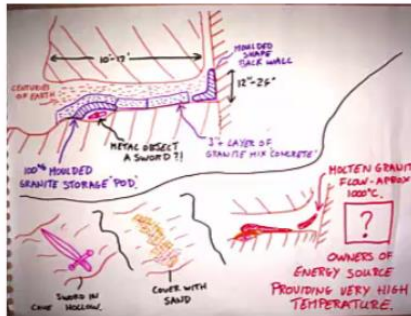 10'-17'
MOULDED
SHAPE
BACK WALL
CENTURIES
OF EARTH
12"-24"
METAL OBJECT
A SWORD?!
3"+ LAYER OF
GRANITE MIX 'CONCRETE'
100% MOULDED
GRANITE STORAGE 'POD'.
MOLTEN GRANITE
FLOW-APPROX
1000°C.
?
OWNERS OF
ENERGY SOURCE
PROVIDING VERY HIGH
TEMPERATURE.
SWORD IN
CAVE HOLLOW.
COVER WITH
SAND